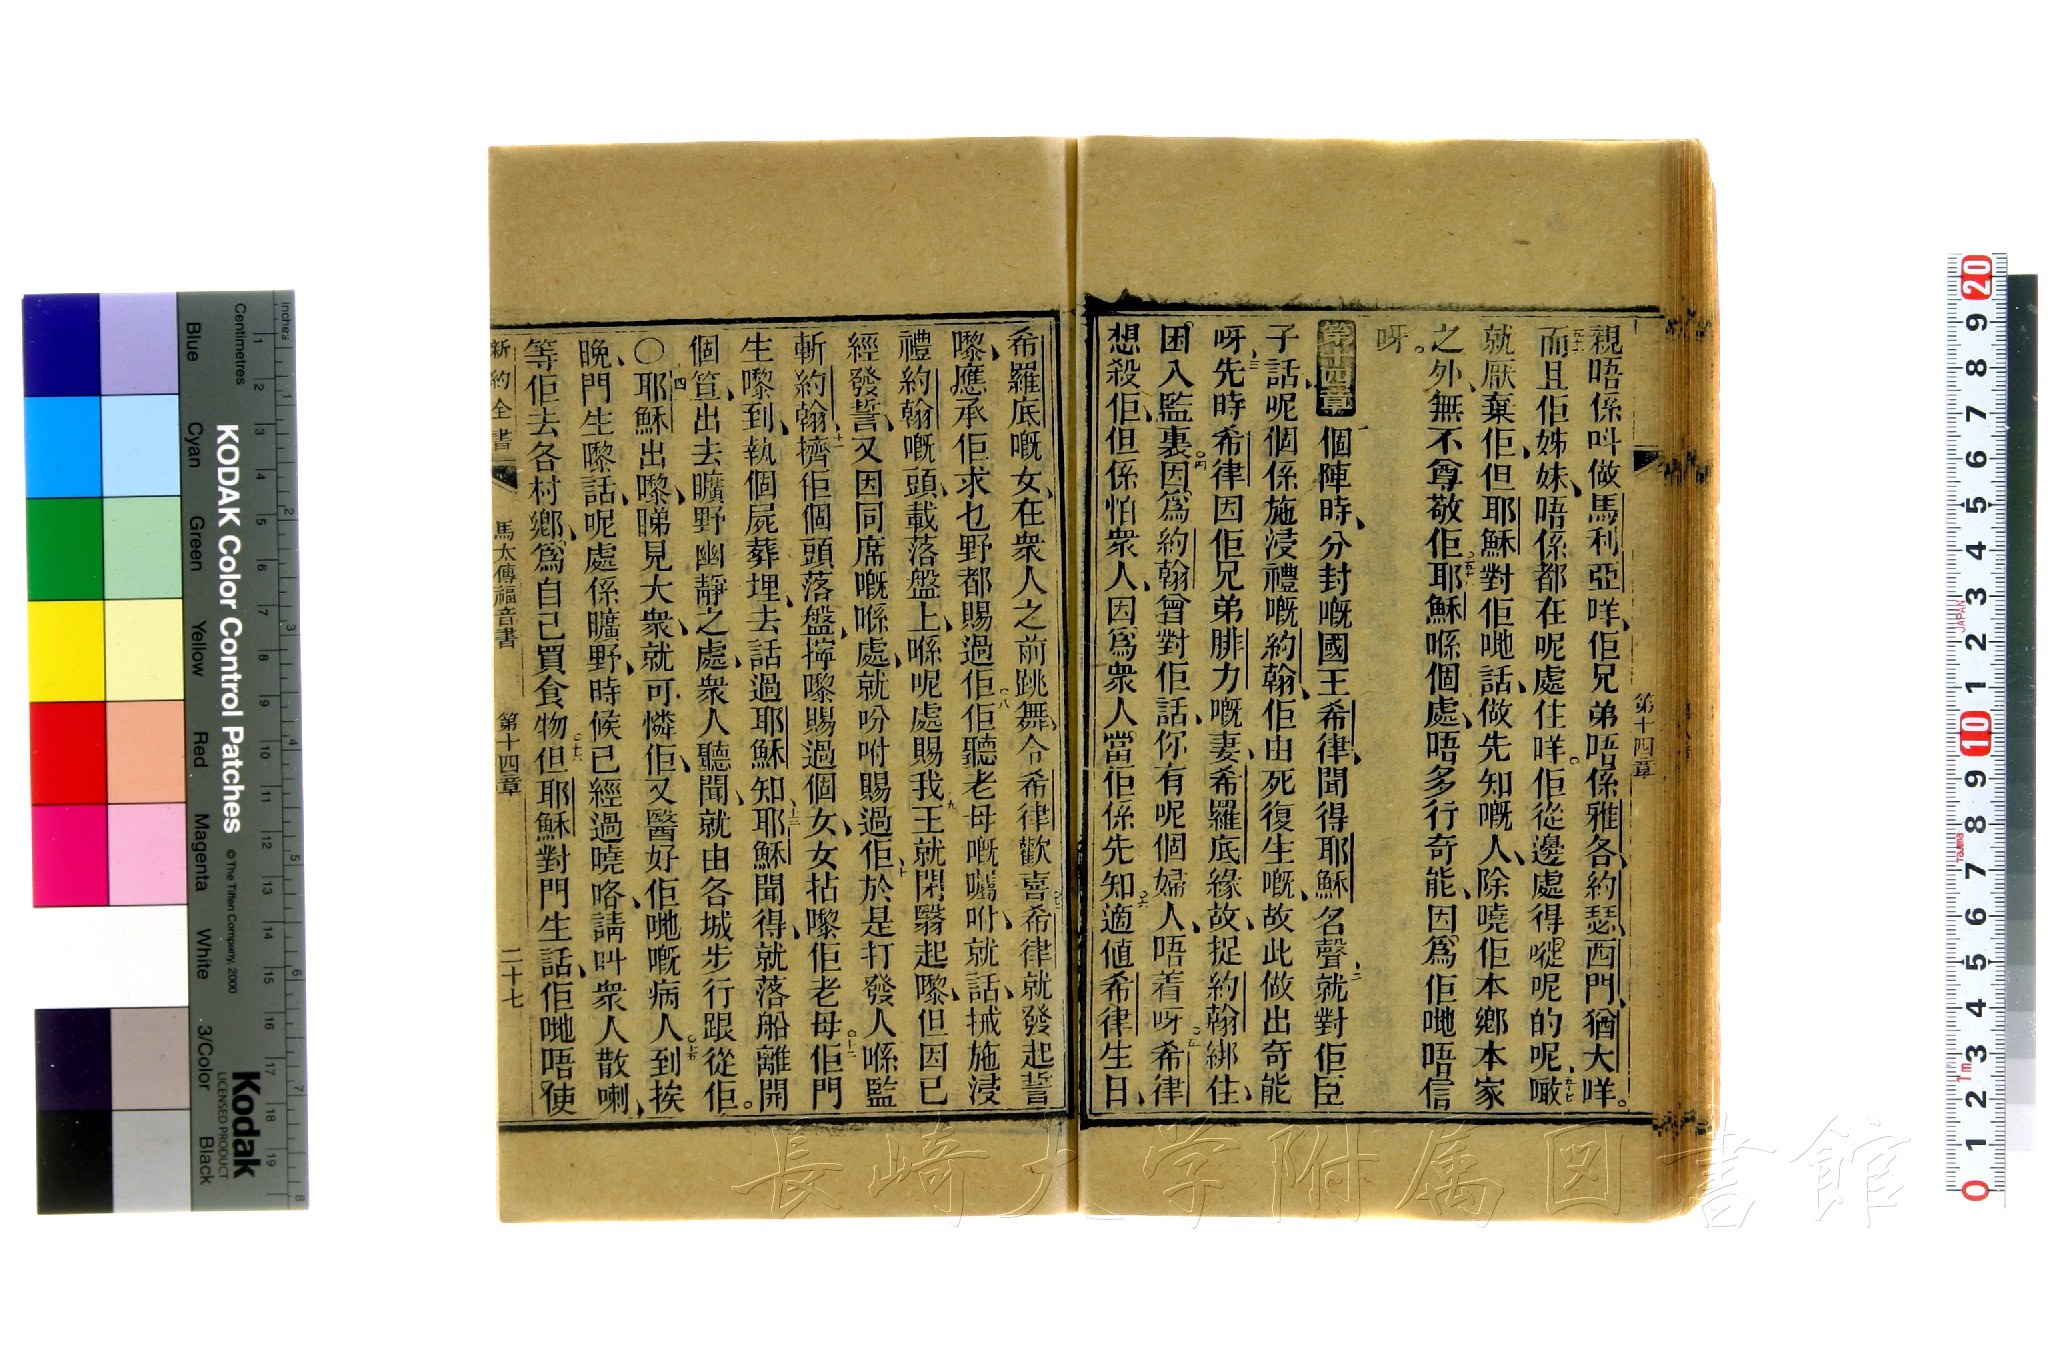 親唔係呌做馬利亞咩、佢兄弟唔係雅各、約瑟、西門、猶大咩。
而且佢姊妹、唔係都在呢處住咩。佢從邊處得嘥呢的呢、噉
就厭棄佢、但耶穌對佢哋話、做先知嘅人、除曉佢本鄉本家
之外、無不尊敬佢。耶穌喺個處、唔多行奇能、因爲佢哋唔信
呀。
第十四章 個陣時、分封嘅國王希律、聞得耶穌名聲、就對佢臣
子話、呢個係施浸禮嘅約翰、佢由死復生嘅、故此做出奇能
呀、先時希律因佢兄弟腓力嘅妻、希羅底緣故、捉約翰綁住、
困入監裏。因爲約翰曾對佢話、你有呢個婦人、唔着呀。希律
想殺佢、但係怕衆人、因爲衆人當佢係先知。適値希律生日、
希羅底嘅女、在衆人之前跳舞、令希律歡喜、希律就發起誓
嚟、應承佢求乜野都賜過佢。佢聽老母嘅囑咐、就話、搣施浸
禮約翰嘅頭、載落盤上、喺呢處賜我。王就閉翳起嚟、但因已
經發誓、又因同席嘅喺處、就吩咐賜過佢。於是打發人喺監
斬約翰、擠佢個頭落盤、擰嚟賜過個女、女拈嚟佢老母。佢門
生嚟到、執個屍葬埋、去話過耶穌知。耶穌聞得、就落船離開
個笪、出去曠野幽靜之處、衆人聽聞、就由各城步行跟從佢。
〇耶穌出嚟、睇見大衆、就可憐佢、又醫好佢哋嘅病人。到挨
晚、門生嚟話、呢處係曠野、時候已經過曉咯、請呌衆人散喇、
等佢去各村鄉、爲自己買食物。但耶穌對門生話、佢哋唔使
新約全書 馬太傳福音書 第十四章 二十七
第十四章
長崎大学附属図書館
KODAK Color Control Patches
© The Tiffen Company, 2000
Kodak
LICENSED PRODUCT
Centimetres
Inches
Blue Cyan Green Yellow Red Magenta White 3/Color Black
JAPAN